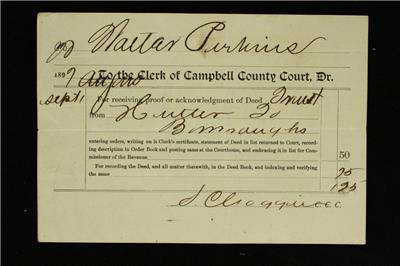 Walter Perkins
1897 To the Clerk of Campbell County Court, Dr.
Sept 1 For receiving proof or acknowledgment of Deed Trust
from Hutter To
Burroughs
entering orders, writing on it Clerk's certificate, statement of Deed in list returned to Court, recording description in Order Book and posting same at the Courthouse, and embracing it in list for Commissioner of the Revenue
50
For recording the Deed, and all matter therewith, in the Deed Book, and indexing and verifying the same
75
125